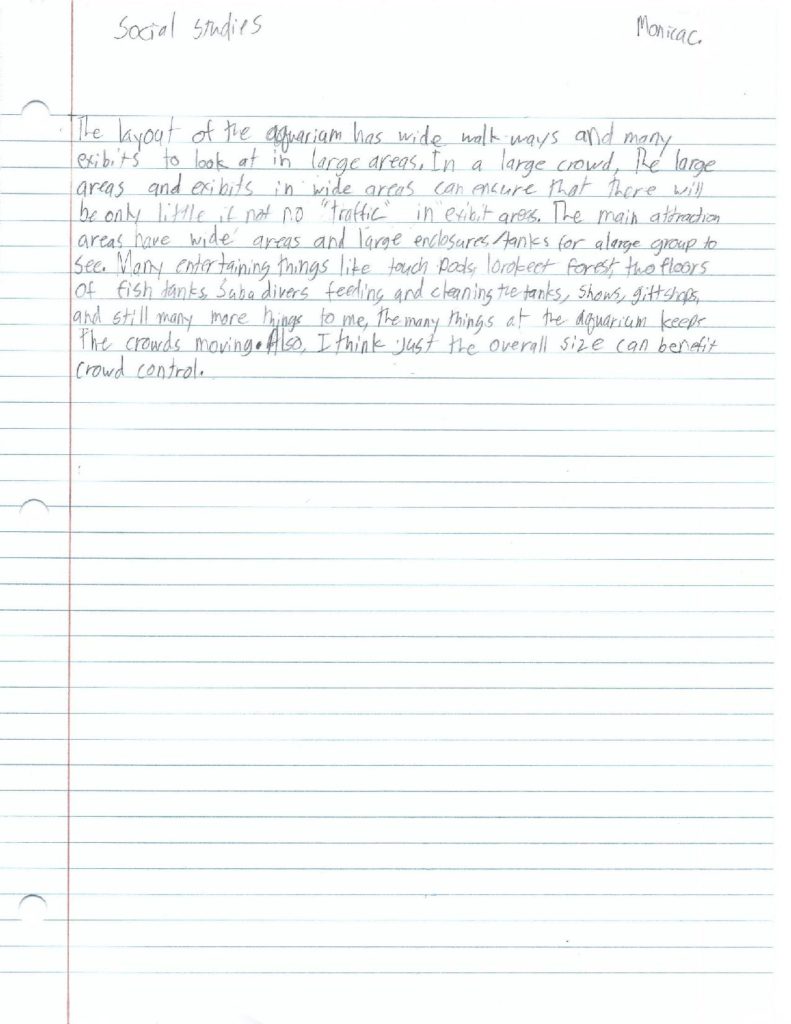 Social Studies
Monica C.
The layout of the aquariam has wide walk-ways and many
exibits to look at in large areas. In a large crowd, The large
areas and exibits in wide areas can encure that there will
be only little if not no "traffic" in exibit areas. The main attraction
areas have wide areas and large enclosures/tanks for a large group to
see. Many entertaining things like touch Pods, lorokeet forest, two floors
of fish tanks, Suba divers feeding and cleaning the tanks, shows, giftshops,
and still many more things to me, The many things at the aquarium keeps
The crowds moving. Also, I think just the overall size can benefit
crowd control.